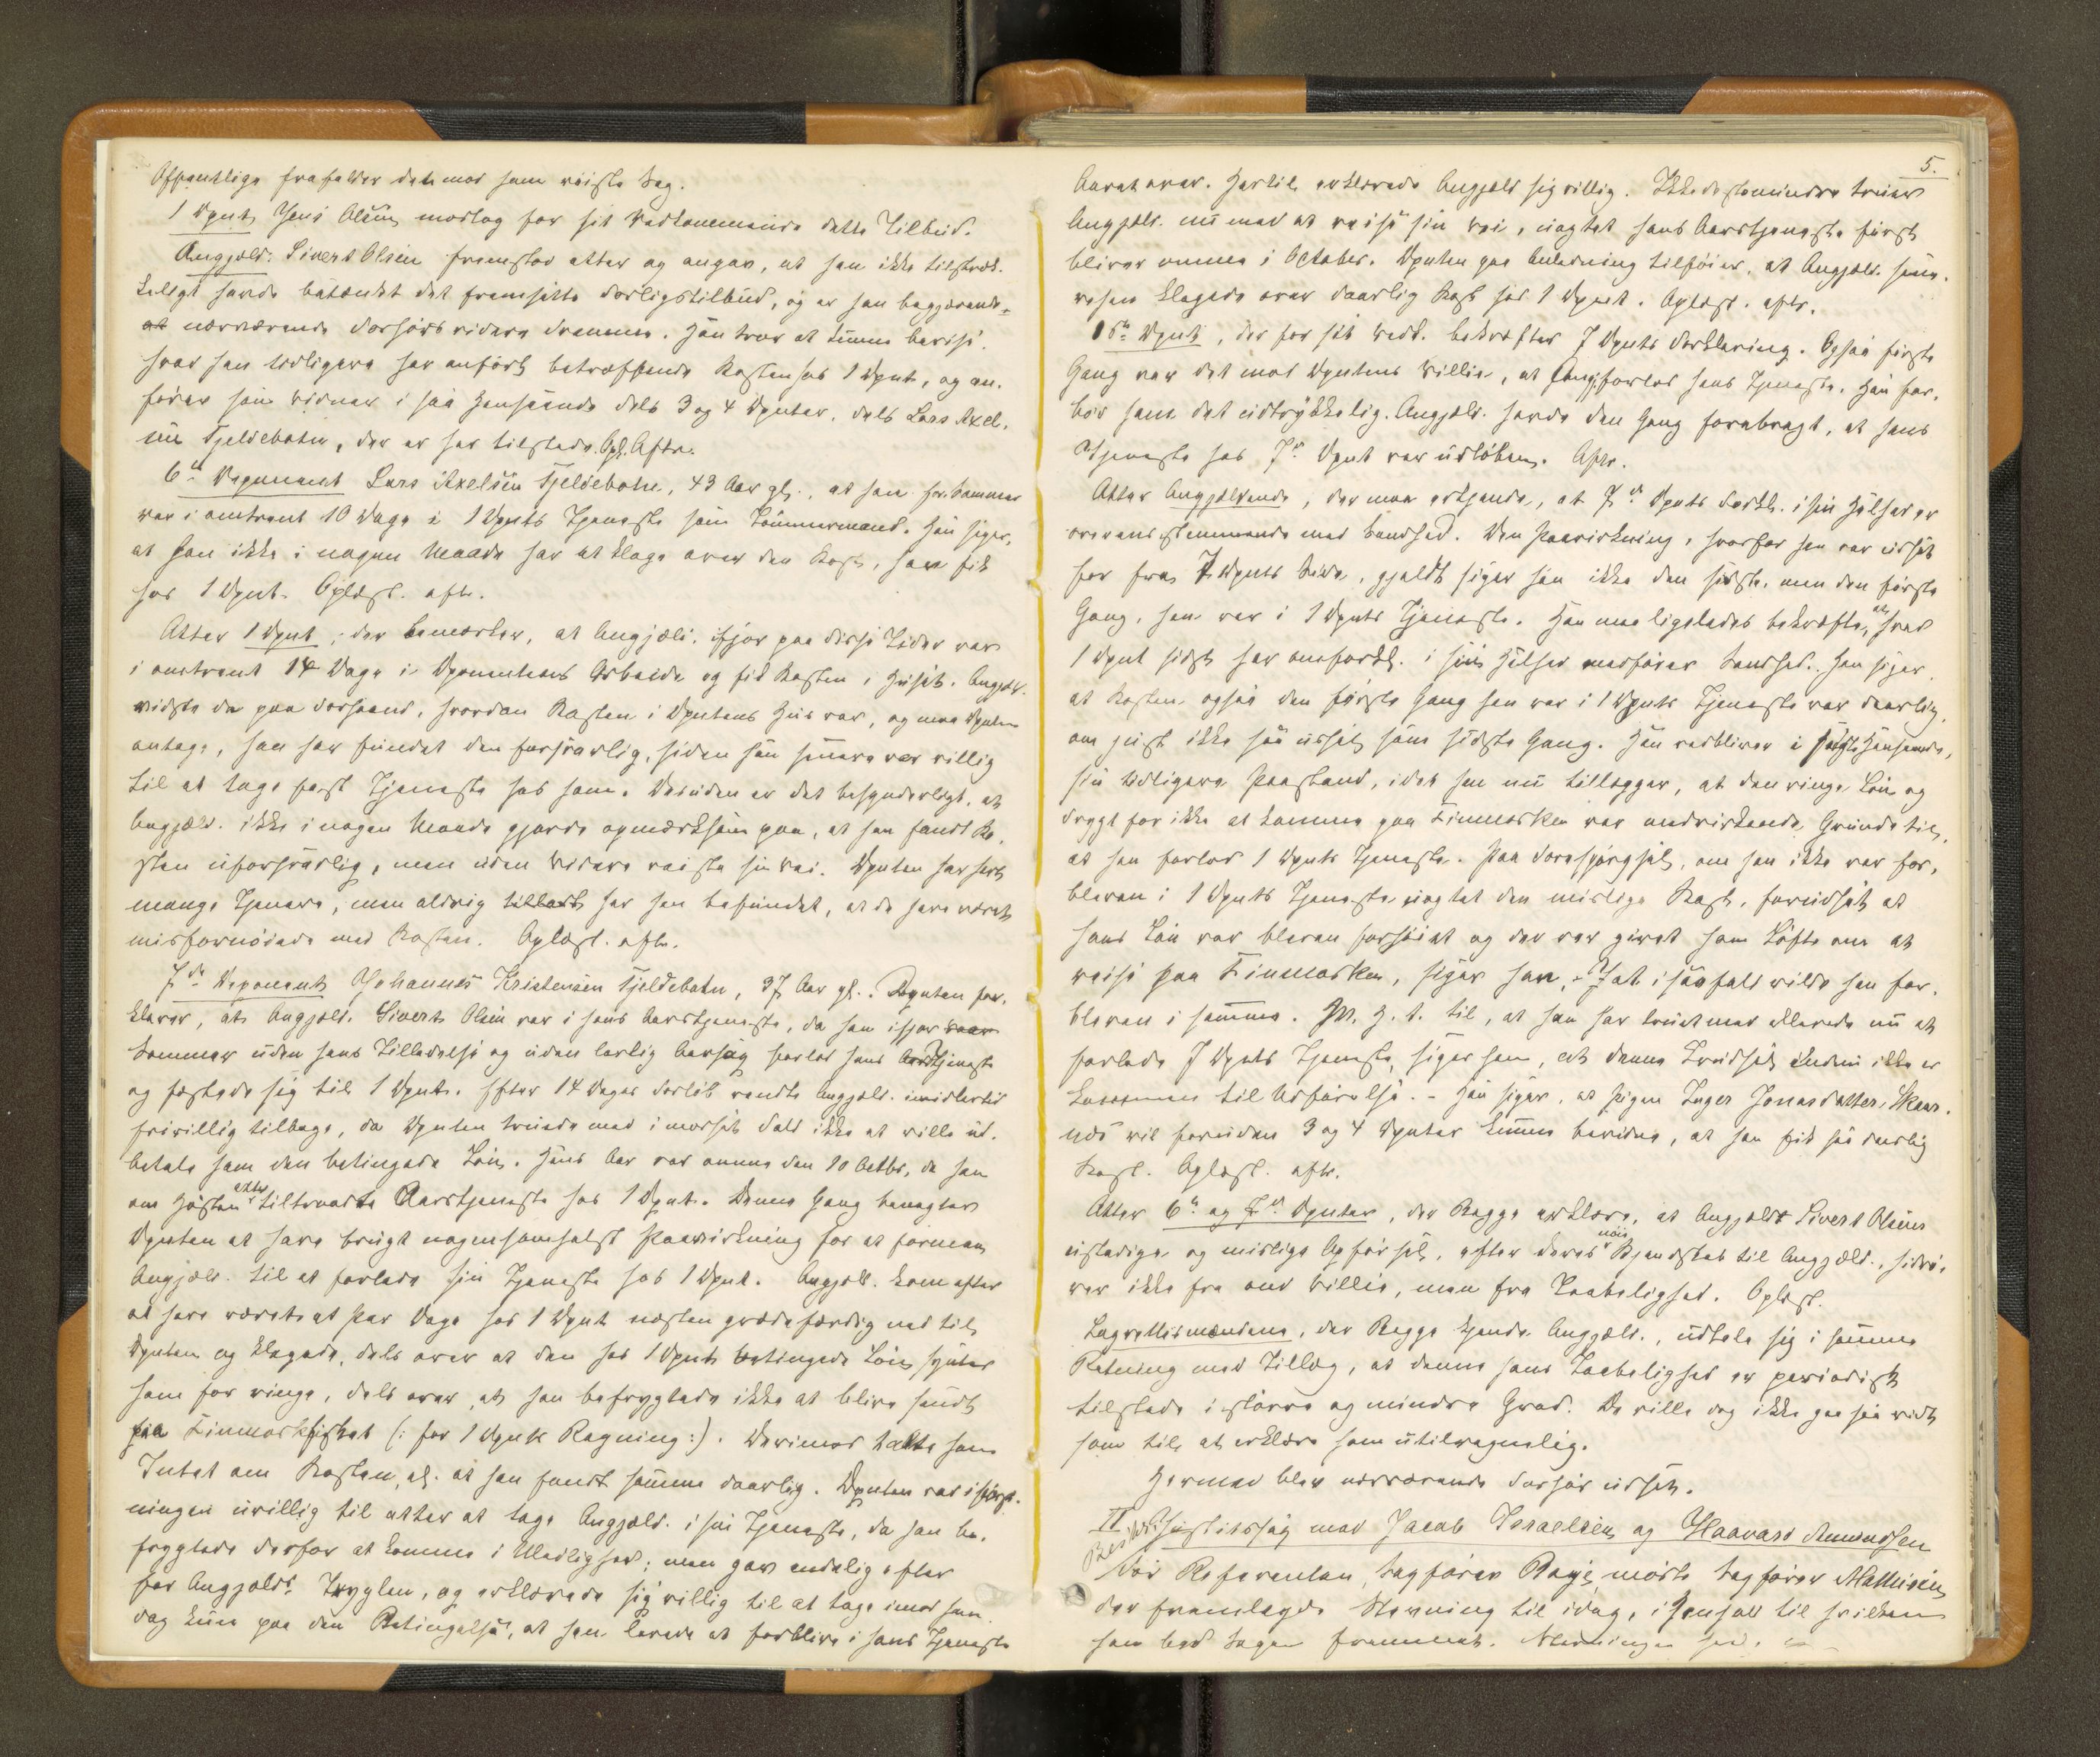 Offentlige frafalder det mod ham reiste Sag.
1 Dpnt Jens Olsen modtog for sit Vedkommende dette Tilbud.
Angjæld. Sivert Olsen fremstod atter og angav, at han ikke tilstræk-
keligt havde betænkt det fremsatte Forligstilbud, og er han begjærende
at nærværende Forhørs videre Fremme. Han tror at kunne bevise
hvad han tidligere har anført betræffende Kosten hos 1 Dpnt, og an-
fører som Vidner i saa Henseende dels 3 og 4 Dpnter, dels Lars Axel-
sen Fjeldebotn, der er her tilstede. Opl. Aftr.
6te Deponent Lars Axelsen Fjeldebotn, 43 Aar gl., at han for Sommer
var i omtrent 10 Dage i 1 Dpnts Tjeneste som Tømmermand. Han siger,
at han ikke i nogen Maade har at klage over den Kost, han fik
hos 1 Dpnt. Oplæst. aftr.
Atter 1 Dpnt, der bemærker, at Angjæld. ifjor paa disse Tider var
i omtrent 14 Dage i Dponentens Arbeide og fik Kosten i Huset. Angjæld.
vidste da paa Forhaand, hvordan Kosten i Dpntens Hus var, og maa Dpnten
antage, han har fundet den forsvarlig, siden han senere var villig
til at tage fast Tjeneste hos ham. Desuden er det besynderligt, at
Angjæld. ikke i nogen Maade gjorde opmærksom paa, at han fandt Ko-
sten uforsvarlig, men uden Videre reiste sin Vei. Dpnten har havt
mange Tjenere, men aldrig har han befundet, at de have været
misfornøiede med Kosten. Oplæst. aftr.
7de Deponent Johannes Kristensen Fjeldebotn, 37 Aar gl. Dpnten for-
klarer, at Angjæld. Sivert Olsen var i hans Aarstjeneste, da han ifjor
Sommer uden hans Tilladelse og uden lovlig Aarsag forlod hans Aarstjeneste
og fæstede sig til 1 Dpnt. Efter 14 Dages Forløb vendte Angjæld. imidlertid
frivillig tilbage, da Dpnten truede med i modsat Fald ikke at ville ud-
betale ham den betingede Løn. Hans Aar var omme den 10 Octbr, da han
om Høsten atter tiltraadte Aarstjeneste hos 1 Dpnt. Denne Gang benægter
Dpnten at have brugt nogensomhelst Paavirkning for at formaa
Angjæld. til at forlade sin Tjeneste hos 1 Dpnt. Angjæld. kom efter
at have været et Par Dage hos 1 Dpnt næsten grædefærdig ned til
Dpnten og klagede, dels over at den hos 1 Dpnt betingede Løn syntes
ham for ringe, dels over, at han befrygtede ikke at blive sendt
paa Finmarkfisket (: for 1 Dpnts Regning :). Derimod talte han
Intet om Kosten, el. at han fandt samme daarlig. Dpnten var i Først-
ningen uvillig til atter at tage Angjæld. i sin Tjeneste, da han be-
frygtede derfor at komme i Uleilighed; men gav endelig efter
for Angjælds Tryglen, og erklærede sig villig til at tage imod ham
dog kun paa den Betingelse, at han lovede at forblive i hans Tjeneste
5.
Aaret over. Hertil erklærede Angjæld sig villig. Ikke destomindre truer
Angjæld. nu med at reise sin Vei, uagtet hans Aarstjeneste først
bliver omme i October. Dpnten paa Anledning tilføier, at Angjæld.
klagede over daarlig Kost hos 1 Dpnt. Oplæst. aftr.
Dpnt, der for sit Vedk. bekræfter 7 Dpnts Forklaring. Ogsaa første
Gang var det mod Dpntens Villie, at Angj. forlod hans Tjeneste. Han for-
bød ham det udtrykkelig. Angjæld. havde den Gang forebragt, at hans
Tjeneste hos 7de Dpnt var udløben. Aftr.
Atter Angjældende, der maa erkjende, at 7de Dpnts Forkl. i sin Helhed er
overensstemmende med Sandhed. Den Paavirkning, hvorfor han var udsat
for fra 7 Dpnts Side, gjaldt siger han ikke den sidste, men den første
Gang, han var i 1 Dpnts Tjeneste. Han maa ligeledes bekræfte, at hvad
1 Dpnt sidst har omforkl. i sin Helhed medfører Sandhed. Han siger,
at Kosten ogsaa den første Gang han var i 1 Dpnts Tjeneste var daarlig,
om just ikke saa ussel som sidste Gang. Han vedbliver i Henseende,
sin tidligere Paastand, idet han nu tillægger, at den ringe Løn og
Frygt for ikke at komme paa Finmarken var medvirkende Grunde til,
at han forlod 1 Dpnts Tjeneste. Paa Forespørgsel, om han ikke var for-
bleven i 1 Dpnts Tjeneste uagtet den mislige Kost, forudsat at
hans Løn var bleven forhøiet og der var givet ham Løfte om at
reise paa Finmarken, siger han, at i saafald vilde han for-
bleven i samme. M. H. t. til, at han har truet med allerede nu at
forlade 7 Dpnts Tjeneste, siger han, at denne Trudsel endnu ikke er
kommen til Udførelse. – Han siger, at Pigen Inger Jonasdatter Skaar-
næs vil foruden 3 og 4 Dpnter kunne bevidne, at han fik saa daarlig
Kost. Oplæst. aftr.
Atter 6te og 7de Dpnter, der Begge erklære, at Angjæld Sivert Olsens
ustadige og mislige Opførsel, efter deres nøie Kjendskab til Angjæld., hidrø-
rer ikke fra ond Villie, men fra Taabelighed. Oplæst.
Lagrettismændene, der Begge kjende Angjæld., udtale sig i samme
Retning med Tillæg, at denne hans Taabelighed er periodisk
tilstede i større og mindre Grad. De ville dog ikke gaa saa vidt
som til at erklære ham utilregnelig.
Hermed blev nærværende Forhør udsat.
II Justitssag mod Jacob Israelsen og Haavard Amundsen
For Referenten, Sagfører Raye, mødte Sagfører Mathisen
der fremlagde Stevning til idag, i Henhold til hvilken
han bad Sagen fremmet. Stevningen